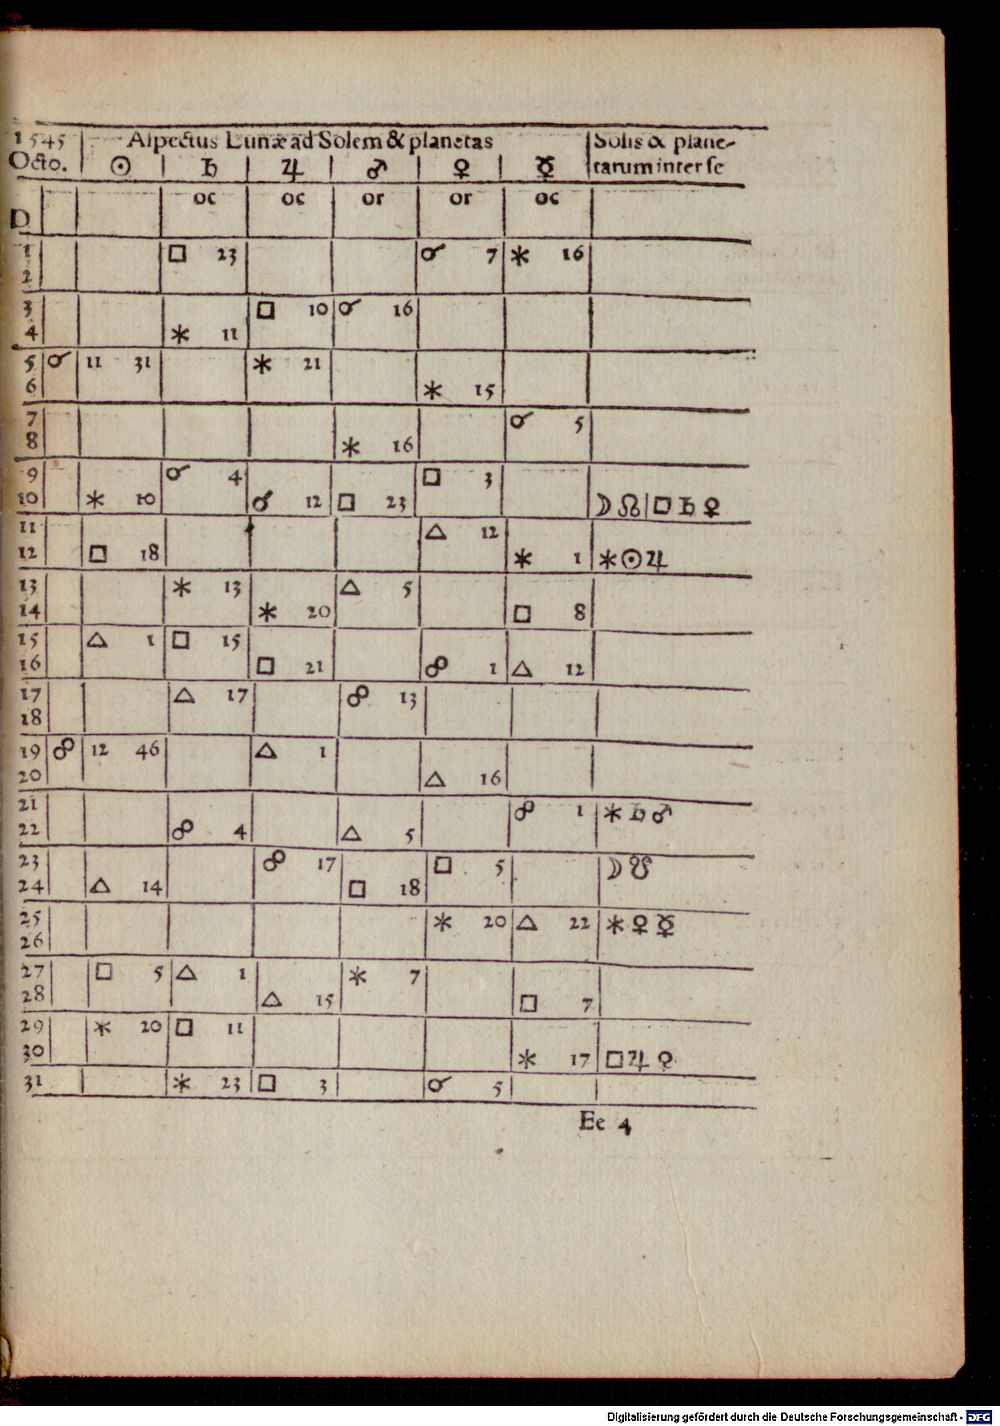 1545 | Aspectus Lunæ ad Solem & planetas | Solis & plane-
Octo. | ☉ | ♄ | ♃ | ♂ | ♀ | ☿ | tarum inter se
D | | | oc | oc | or | or | oc |
1 | | | □ 23 | | | ☌ 7 | ⚹ 16 |
2
3 | | | | □ 10 | ☌ 16 | | |
4 | | | ⚹ 11 | | | | |
5 | ☌ | 11 31 | | ⚹ 21 | | | |
6 | | | | | | ⚹ 15 | |
7 | | | | | | | ☌ 5 |
8 | | | | | ⚹ 16 | | |
9 | | | ☌ 4 | | | □ 3 | |
10 | | ⚹ 10 | | ☌ 12 | □ 23 | | | ☽ ☊ | □ ♄ ♀
11 | | | | | | △ 12 | |
12 | | □ 18 | | | | | ⚹ 1 | ⚹ ☉ ♃
13 | | | ⚹ 13 | | △ 5 | | |
14 | | | | ⚹ 20 | | | □ 8 |
15 | | △ 1 | □ 15 | | | | |
16 | | | | □ 21 | | ☍ 1 | △ 12 |
17 | | | △ 17 | | ☍ 13 | | |
18
19 | ☍ | 12 46 | | △ 1 | | | |
20 | | | | | | △ 16 | |
21 | | | | | | | ☍ 1 | ⚹ ♄ ♂
22 | | | ☍ 4 | | △ 5 | | |
23 | | | | ☍ 17 | | □ 5 | | ☽ ☋
24 | | △ 14 | | | □ 18 | | |
25 | | | | | | ⚹ 20 | △ 22 | ⚹ ♀ ☿
26
27 | | □ 5 | △ 1 | | ⚹ 7 | | |
28 | | | | △ 15 | | | □ 7 |
29 | | ⚹ 20 | □ 11 | | | | |
30 | | | | | | | ⚹ 17 | □ ♃ ♀
31 | | | ⚹ 23 | □ 3 | | ☌ 5 | |
Ee 4
Digitalisierung gefördert durch die Deutsche Forschungsgemeinschaft - DFG